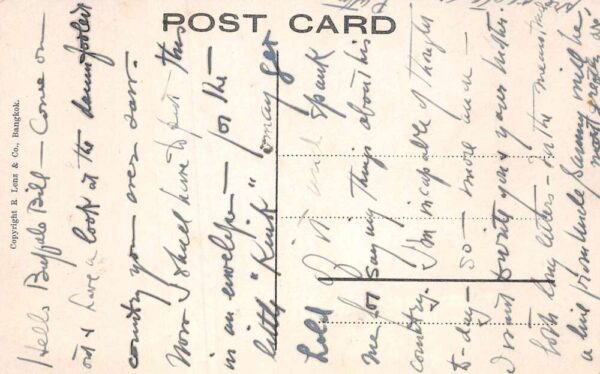 POST CARD
Copyright R. Lenz & Co., Bangkok.
Hello Buffalo Bill — Come on
out & have a look at the damnfoolest
country you ever saw.
Now I shall have to put this
in an envelope — for the
little "Kink" may get
hold of it and spank
me for saying things about his
country. I'm incapable of thought
to-day — so — more anon —
I want to write you & your sister
both long letters — in the meantime
a line from Uncle Sammy will be
most